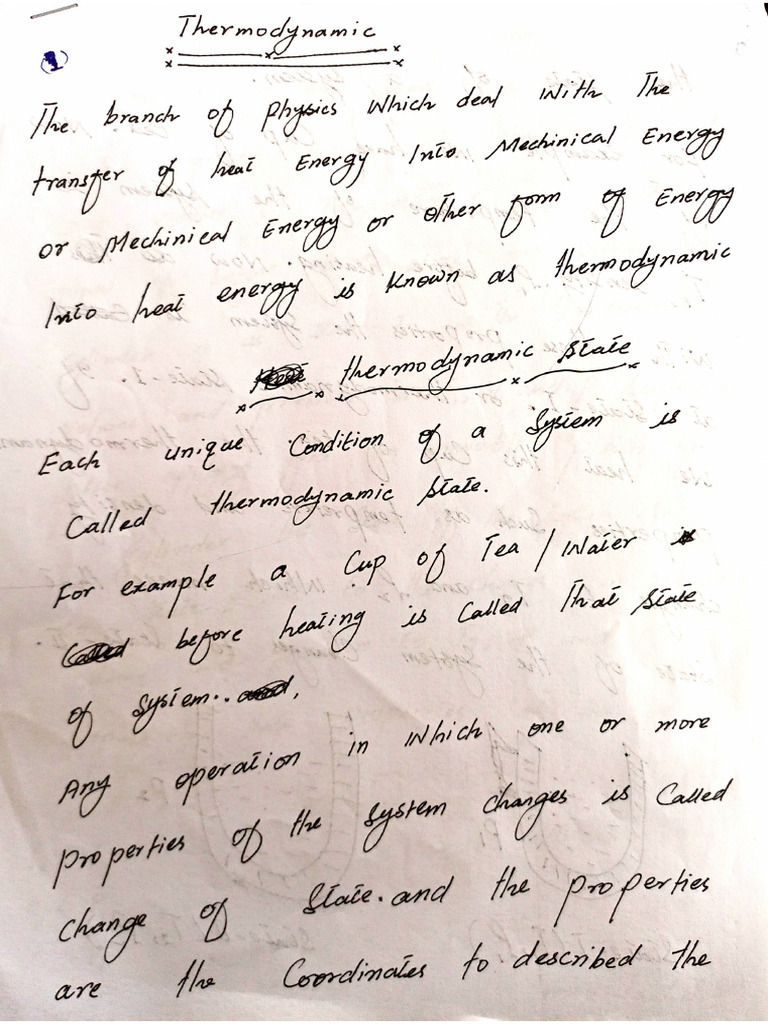 Thermodynamic
1
The branch of physics Which deal With The
transfer of heat Energy Into Mechinical Energy
or Mechinical Energy or other form of Energy
Into heat energy is Known as thermodynamic
thermodynamic State
Each unique Condition of a System is
Called thermodynamic State.
For example a Cup of Tea / Water is
before heating is Called That State
of System..
Any operation in Which one or more
properties of the System changes is Called
change of State. and the properties
are the Coordinates to described the